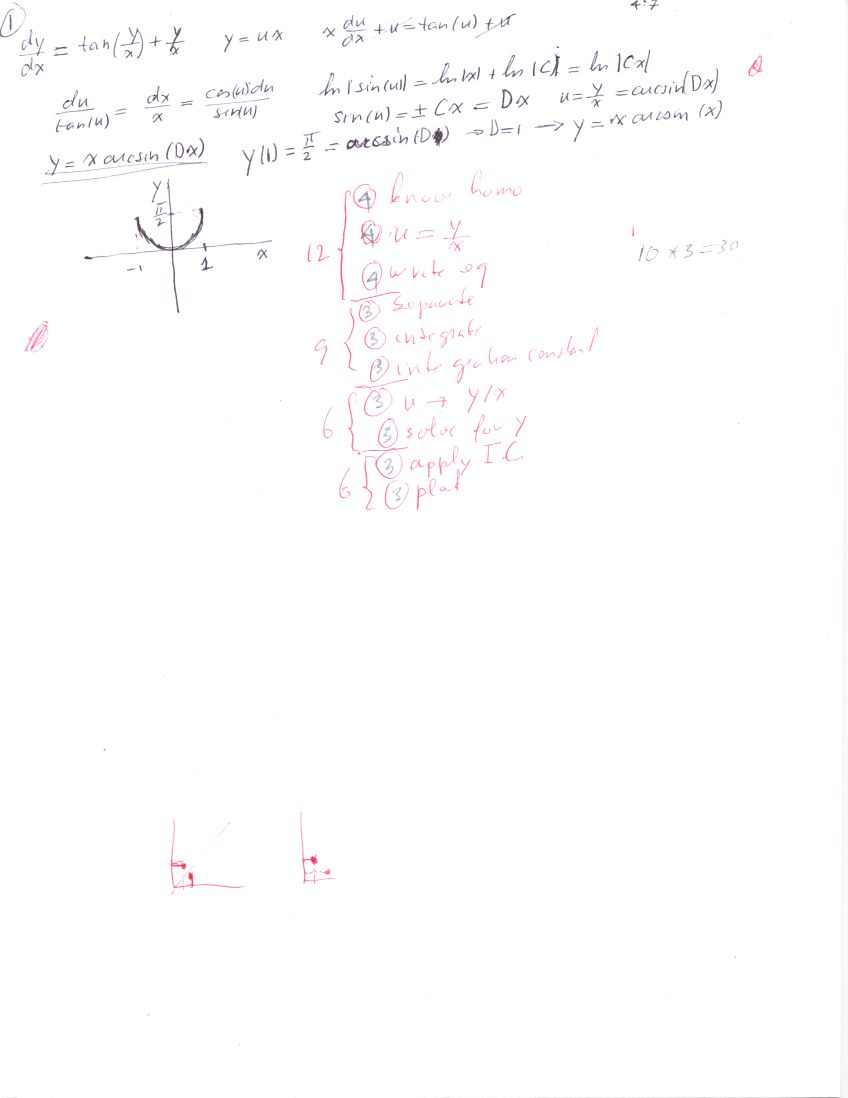 4:7
① dy/dx = tan(y/x) + y/x   y = ux   x du/dx + u = tan(u) + u
du/tan(u) = dx/x = cos(u)du/sin(u)   ln|sin(u)| = ln|x| + ln|C| = ln|Cx|
sin(u) = ± Cx = Dx   u = y/x = arcsin(Dx)
y = x arcsin(Dx)   y(1) = π/2 = arcsin(D) → D=1 → y = x arcsin(x)
y
π/2
-1 1 x
12 { ④ know homo
④ u = y/x
④ write eq
9 { ③ separate
③ integrate
③ integration constant
6 { ③ u → y/x
③ solve for y
6 { ③ apply IC
③ plot
10 * 3 = 30